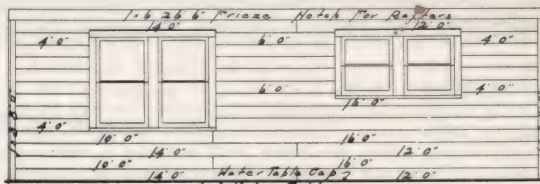 1x6 26'6" Frieze Notch For Rafters
14'0" 12'0"
4'0" 6'0" 4'0"
6'0" 4'0"
16'0"
4'0"
10'0" 16'0"
14'0" 12'0"
10'0" 16'0"
14'0" Water Table Cap 12'0"